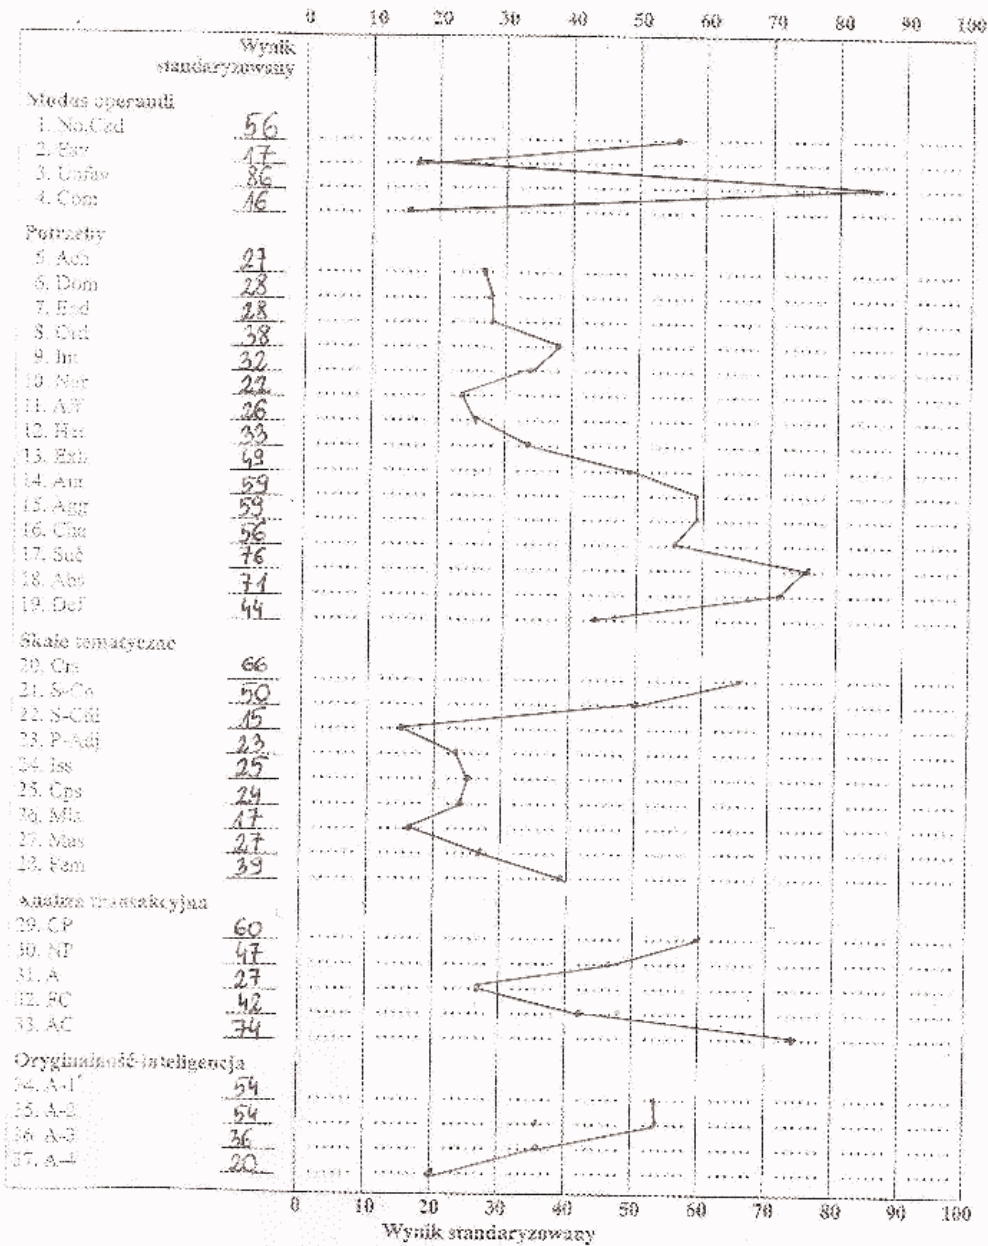 0 10 20 30 40 50 60 70 80 90 100
Wynik
standaryzowany
Modus operandi
1. No.Ckd 56
2. Fav 17
3. Unfav 86
4. Com 16
Potrzeby
5. Ach 27
6. Dom 28
7. End 28
8. Ord 38
9. Int 32
10. Nur 22
11. Aff 26
12. Het 33
13. Exh 49
14. Aut 59
15. Agg 59
16. Cha 56
17. Suc 76
18. Aba 71
19. Def 44
Skale tematyczne
20. Crs 66
21. S-Cn 50
22. S-Cfd 15
23. P-Adj 23
24. Iss 25
25. Cps 24
26. Mls 17
27. Mas 27
28. Fem 39
Analiza transakcyjna
29. CP 60
30. NP 47
31. A 27
32. FC 42
33. AC 74
Oryginalność-inteligencja
34. A-1 54
35. A-2 54
36. A-3 36
37. A-4 20
0 10 20 30 40 50 60 70 80 90 100
Wynik standaryzowany